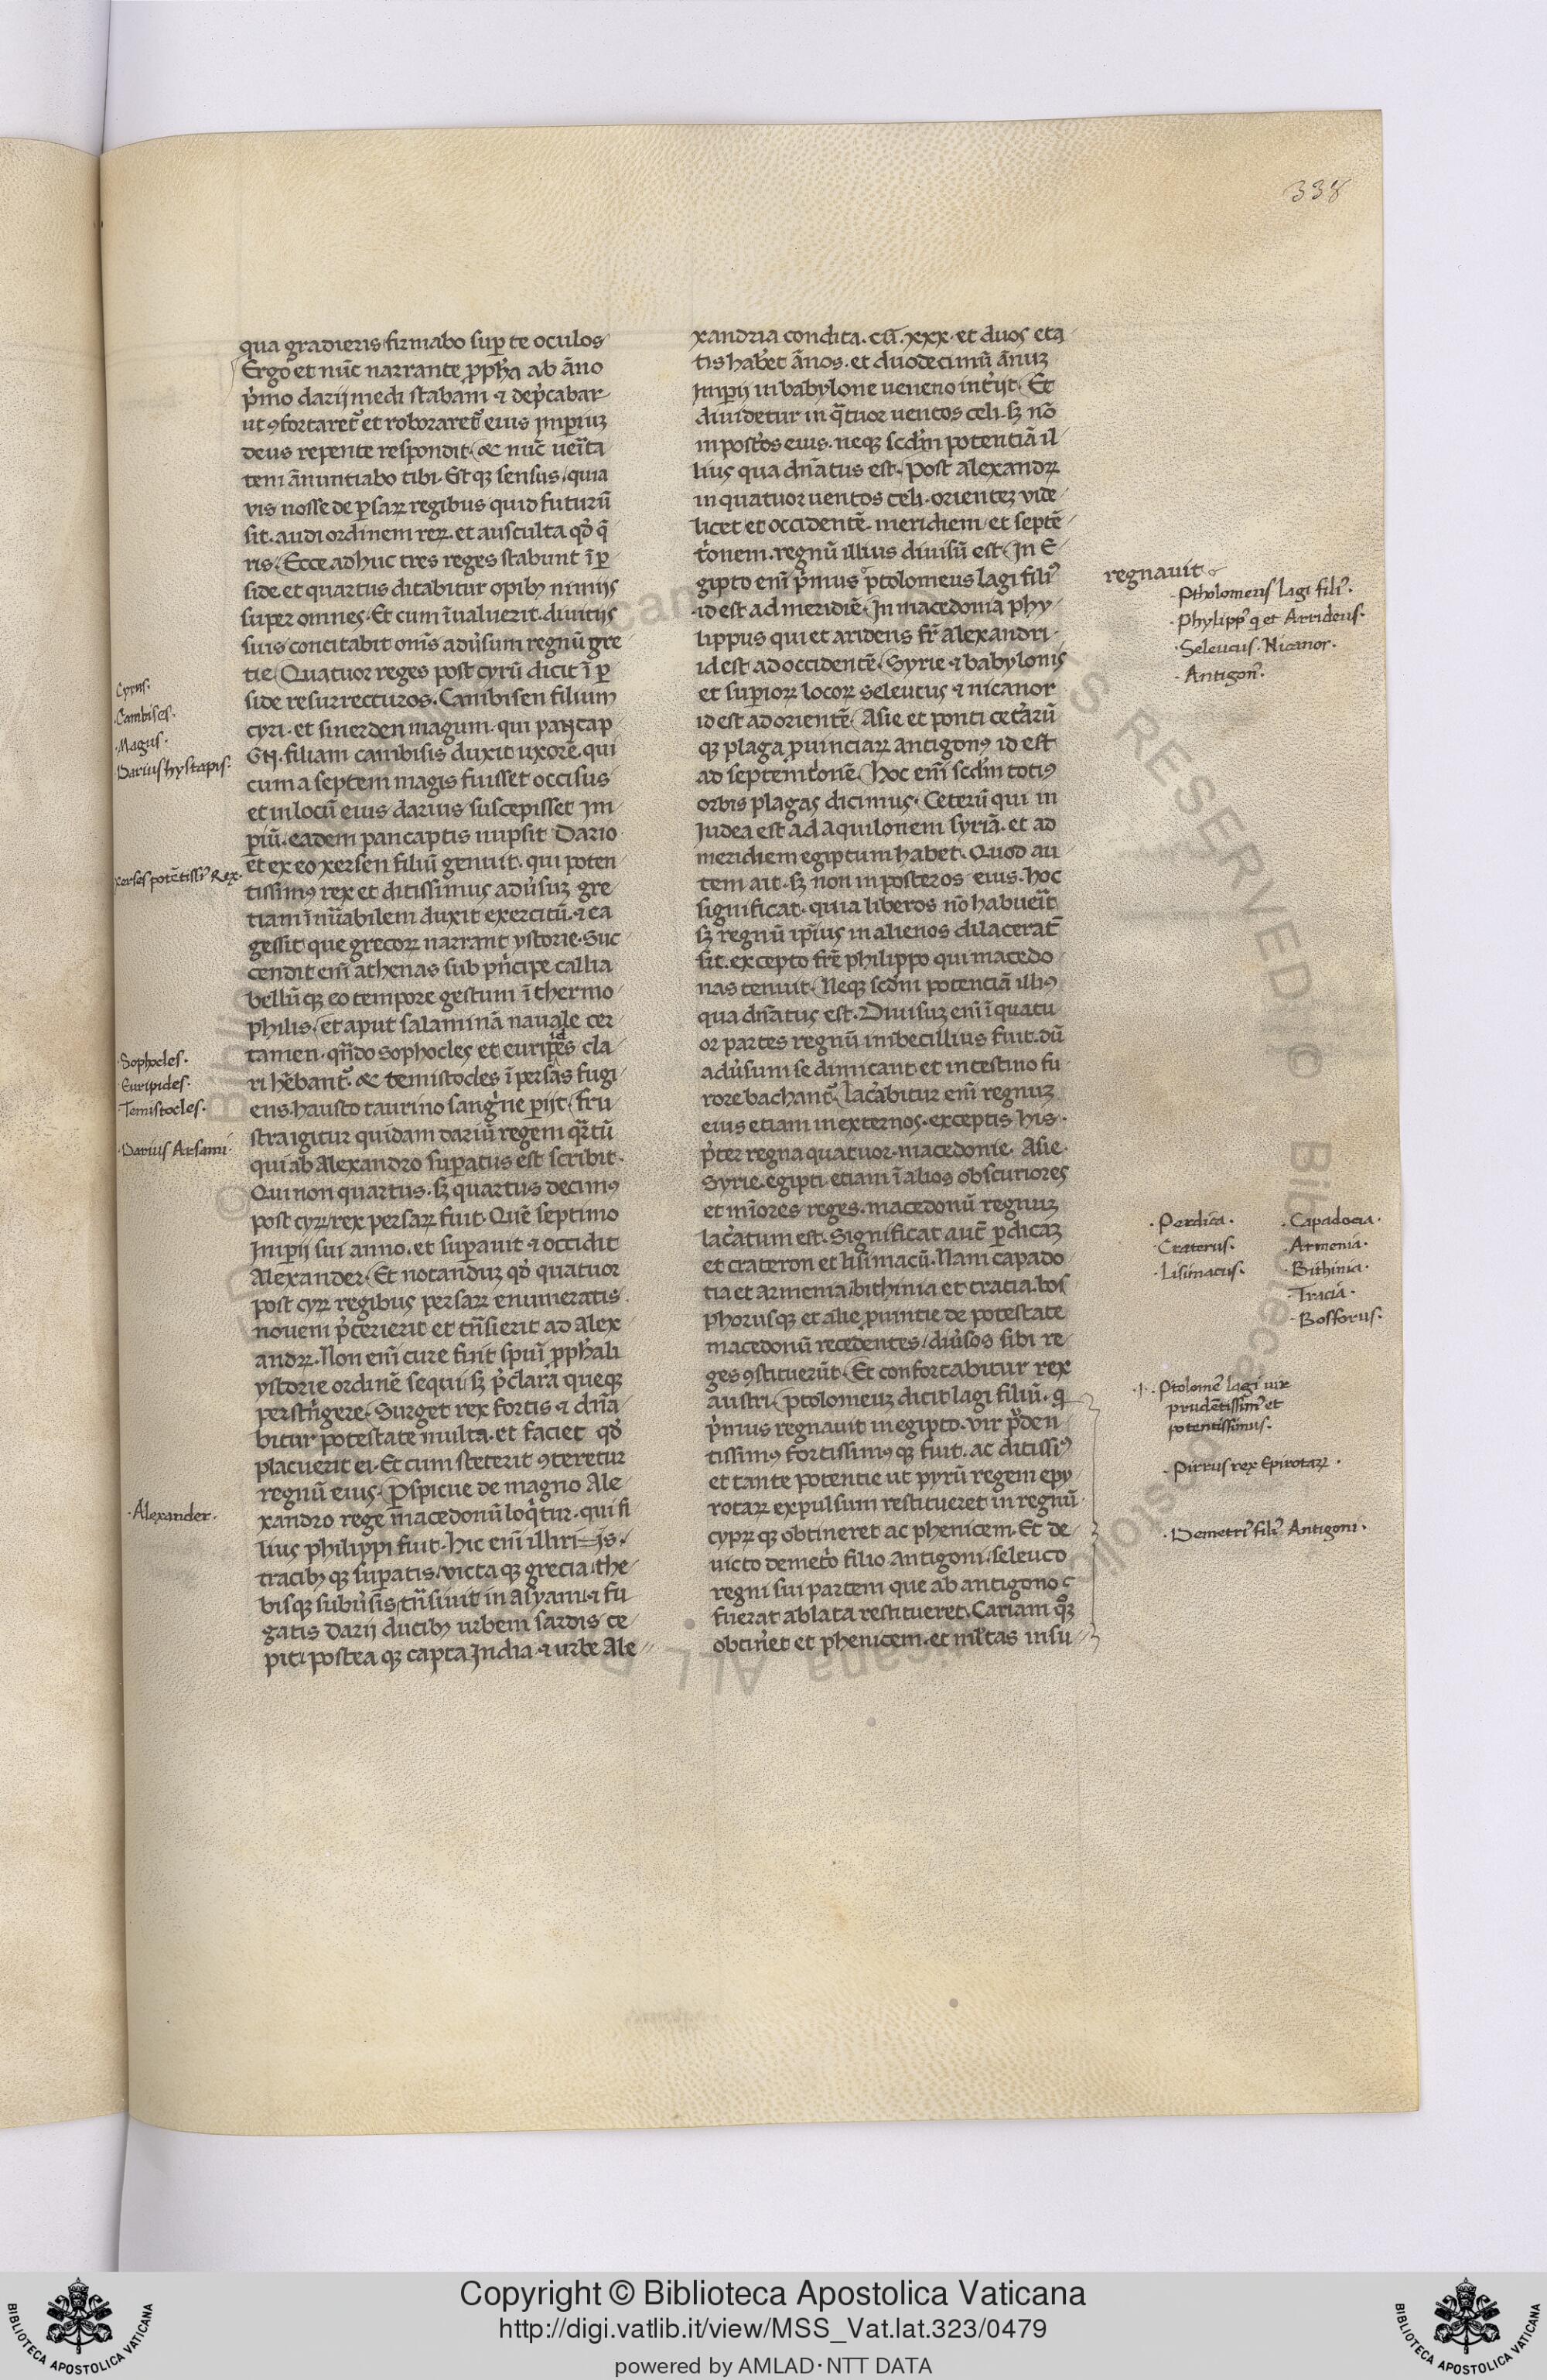 338
qua gradieris firmabo sup te oculos
Ergo et nūc narrante ꝓpħa ab āno
p̓mo darij medi stabam ⁊ dep̓cabar
ut ꝯfortaret᷑ et roboraret᷑ eius Imperiuꝫ
deus repente respondit. & nūc ueīta
tem ānuntiabo tibi. Est qꝫ sensus. quia
vis nosse de psaꝝ regibus quid futurū
sit. audi ordinem reꝝ. et ausculta qđ q̄
ris. Ecce adhuc tres reges stabunt ī ꝑ
side et quartus ditabitur opibꝫ nimijs
super omnes. Et cum īualuerit. diuitijs
suis concitabit om̄s adūsum regnū gre
tie. Quatuor reges post cyrū dicit ī ꝑ
side resurrecturos. Cambisen filium
cyri. et smerden magum. qui pantap
Gtj. filiam cambisis duxit uxorē. qui
cum a septem magis fuisset occisus
et in locū eius darius suscepisset Im
piū. eadem pancaptis nupsit Dario
et ex eo xersen filiū genuit. qui poten
tissimꝰ rex et ditissimus adūsuꝫ gre
tiam īnūabilem duxit exercitū. ⁊ ea
gessit que grecoꝝ narrant ystorie. Suc
cendit em̄ athenas sub pn̄cipe callia
bellū qꝫ eo tempore gestum ī thermo
philis. et aput salaminā nauale cer
tamen. qn̄do sophocles et euripides cla
ri hēbant᷑. & temistocles ī persas fugi
ens. hausto taurino sang̓ne pijt. fru
stra igitur quidam dariū regem qr̄tū
qui ab Alexandro supatus est scribit.
Qui non quartus. sꝫ quartus decimꝰ
post cyꝝ rex persaꝝ fuit. Quē septimo
Imperij sui anno. et supauit ⁊ occidit
Alexander. Et notanduꝫ qđ quatuor
post cyꝝ regibus persaꝝ enumeratis
nouem p̓terierit et tn̄sierit ad Alex
andꝝ. Non em̄ cure fuit spūi ꝓpħali
ystorie ordinē sequi. sꝫ p̓clara queqꝫ
perstri̓gere. Surget rex fortis ⁊ dn̄a
bitur potestate multa. et faciet qđ
placuerit ei. Et cum steterit ꝯteretur
regnū eius. Pspicue de magno Ale
xandro rege macedonū loq̓tur. qui fi
lius philippi fuit. Hic em̄ illiri=Js.
tracibꝫ qꝫ supatis. victa qꝫ grecia. the
bisqꝫ subūsis. tn̄siuit in Asyam. ⁊ fu
gatis Darij ducibꝫ urbem sardis ce
pit. postea qꝫ capta India ⁊ urbe Ale
Cyrus.
.Cambises.
.Magus.
Darius hystapis.
xerses potētissiꝰ Rex.
.Sophocles.
.Euripides.
.Temistocles.
.Darius Arsami.
.Alexander.
xandria condita. cū. xxx. et duos eta
tis haberet ānos. et duodecimū ānuꝫ
Imperij in babylone ueneno int̓ijt. Et
diuidetur in q̄tuor uentos celi. sꝫ nō
in post̓os eius. neqꝫ scd̄m potentiā il
lius qua dn̄atus est. Post alexandꝝ
in quatuor uentos celi. orienteꝫ vide
licet et occidentē. meridiem et septē
t̓onem. regnū illius diuisū est. In E
gipto em̄ p̓mus ptolomeus lagi filiꝰ
.id est ad meridiē. In macedonia phy
lippus qui et arideus fr̄ alexandri.
id est ad occidentē. Syrie ⁊ babylonis
et supioꝝ locoꝝ seleucus ⁊ nicanor
id est ad orientē. Asie et ponti cetaꝝū
qꝫ plaga ꝓuinciaꝝ antigonꝰ id est
ad septemt̓onē. Hoc em̄ scd̄m totiꝰ
orbis plagas dicimus. Ceterū qui in
Judea est ad aquilonem syriā. et ad
meridiem egiptum habet. Quod au
tem ait. sꝫ non in posteros eius. hoc
significat. quia liberos nō habueīt
sꝫ regnū ip̄ius in alienos dilacerat̄
sit. excepto fr̄e philippo qui macedo
nas tenuit. Neqꝫ scd̄m potenciā illiꝰ
qua dn̄atus est. Diuisuꝫ em̄ ī quatu
or partes regnū inbecillius fuit. dū
adūsum se dimicant et intestino fu
rore bachant᷑. Lac̓abitur em̄ regnuꝫ
eius etiam in externos. exceptis his.
p̓ter regna quatuor. macedonie. Asie.
Syrie. egipti. etiam ī alios obscuriores
et mīores reges. macedonū regnuꝫ
lac̓atum est. Significat aut̄ pdicaꝫ
et crateron et lisimacū. Nam capado
tia et armenia. bithinia et tracia. bos
phorusqꝫ et alie ꝓuintie de potestate
macedonū recedentes. diūsos sibi re
ges ꝯstituerūt. Et confortabitur rex
austri. Ptolomeuꝫ dicit lagi filiū. q̓
p̓mus regnauit in egipto. vir p̓den
tissimꝰ fortissimꝰ qꝫ fuit. ac ditissiꝰ
et tante potentie ut pyrū regem epy
rotaꝝ expulsum restitueret in regnū
cypꝝ qꝫ obtineret ac phenicem. Et de
uicto demet̓o filio antigoni. seleuco
regni sui partem que ab antigono
fuerat ablata restitueret. Cariam qꝫ
obtin̓et et phenicem. et ml̄tas insu
regnauit
.Ptholomeus lagi filiꝰ.
.Phylippꝰ q̓ et Arrideus.
.Seleucus. Nicanor.
.Antigonꝰ.
.Perdica. .Capadocia.
.Craterus. .Armenia.
.Lisimacus. .Bithinia.
.Tracia.
.Bosforus.
.I. Ptolomeꝰ lagi vir
prudētissimꝰ et
potentissimus.
.Pirrus rex Epirotaꝝ.
.Demetriꝰ filiꝰ Antigoni.
Copyright © Biblioteca Apostolica Vaticana
http://digi.vatlib.it/view/MSS_Vat.lat.323/0479
powered by AMLAD·NTT DATA
BIBLIOTECA APOSTOLICA VATICANA
BIBLIOTECA APOSTOLICA VATICANA